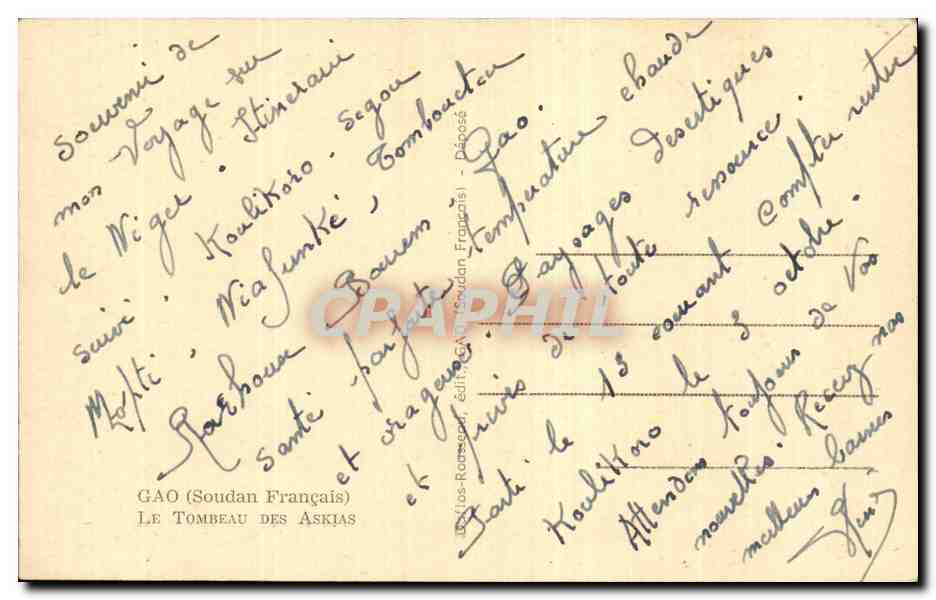 Souvenir de
mon Voyage sur
le Niger. Itinéraire
suivi. Koulikoro. Segou
Mopti, Niafunké, Tombouctou
Rarhous Bourem Gao.
Santé parfaite température chaude
et orageuse. Paysages desertiques
et privés de toute ressource.
Parti le 13 courant Compter rentrer
Koulikoro le 3 octobre.
Attendons toujours de vos
nouvelles. Recevez nos
meilleurs baisers
GAO (Soudan Français)
LE TOMBEAU DES ASKIAS
Jos-Rousseau, édit., GAO (Soudan Français) - Déposé
CPAPHIL